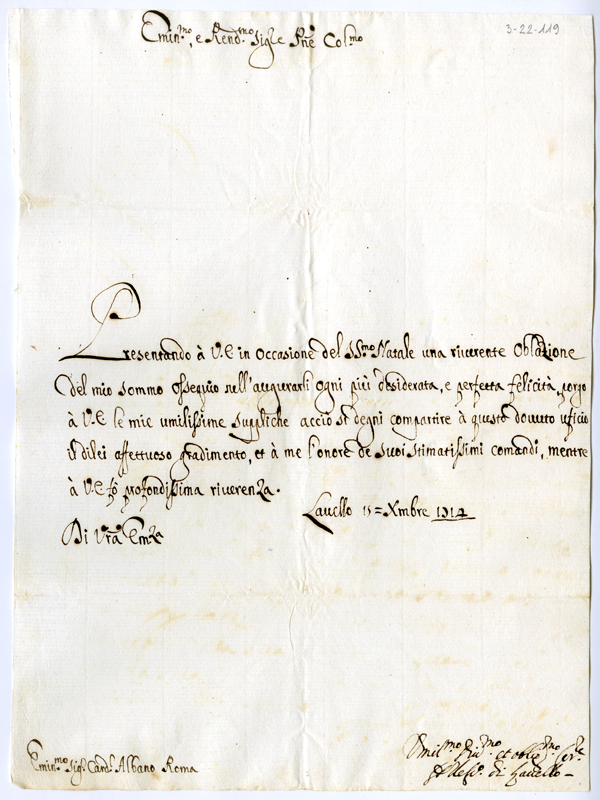 3-22-119
Emin.mo, e Rend.mo Sig.re Pñe Col.mo
Presentando à V.E in occasione del SS.mo Natale una riverente Oblazione
del mio sommo ossequio nell'augurarli ogni più desiderata, e perfetta felicità, porgo
à V.E le mie umilissime suppliche acciò si degni compartire à questo dovuto uficio
il dilei affettuoso gradimento, et à me l'onore de suoi stimatissimi comandi, mentre
à V.E fò profondissima riverenza.
Lavello 15=Xmbre 1714
Di Vrã Emza
Emin.mo Sig.r Card.l Albano Roma
Umil.mo Div.mo et oblig.mo Ser.re
di Lavello